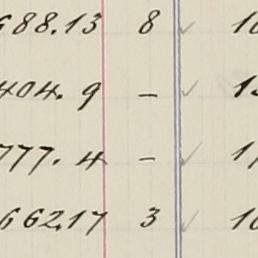 688.13 8 ✓ 10
404. 9 – ✓ 1
777. 4 – ✓ 1
662.17 3 ✓ 10